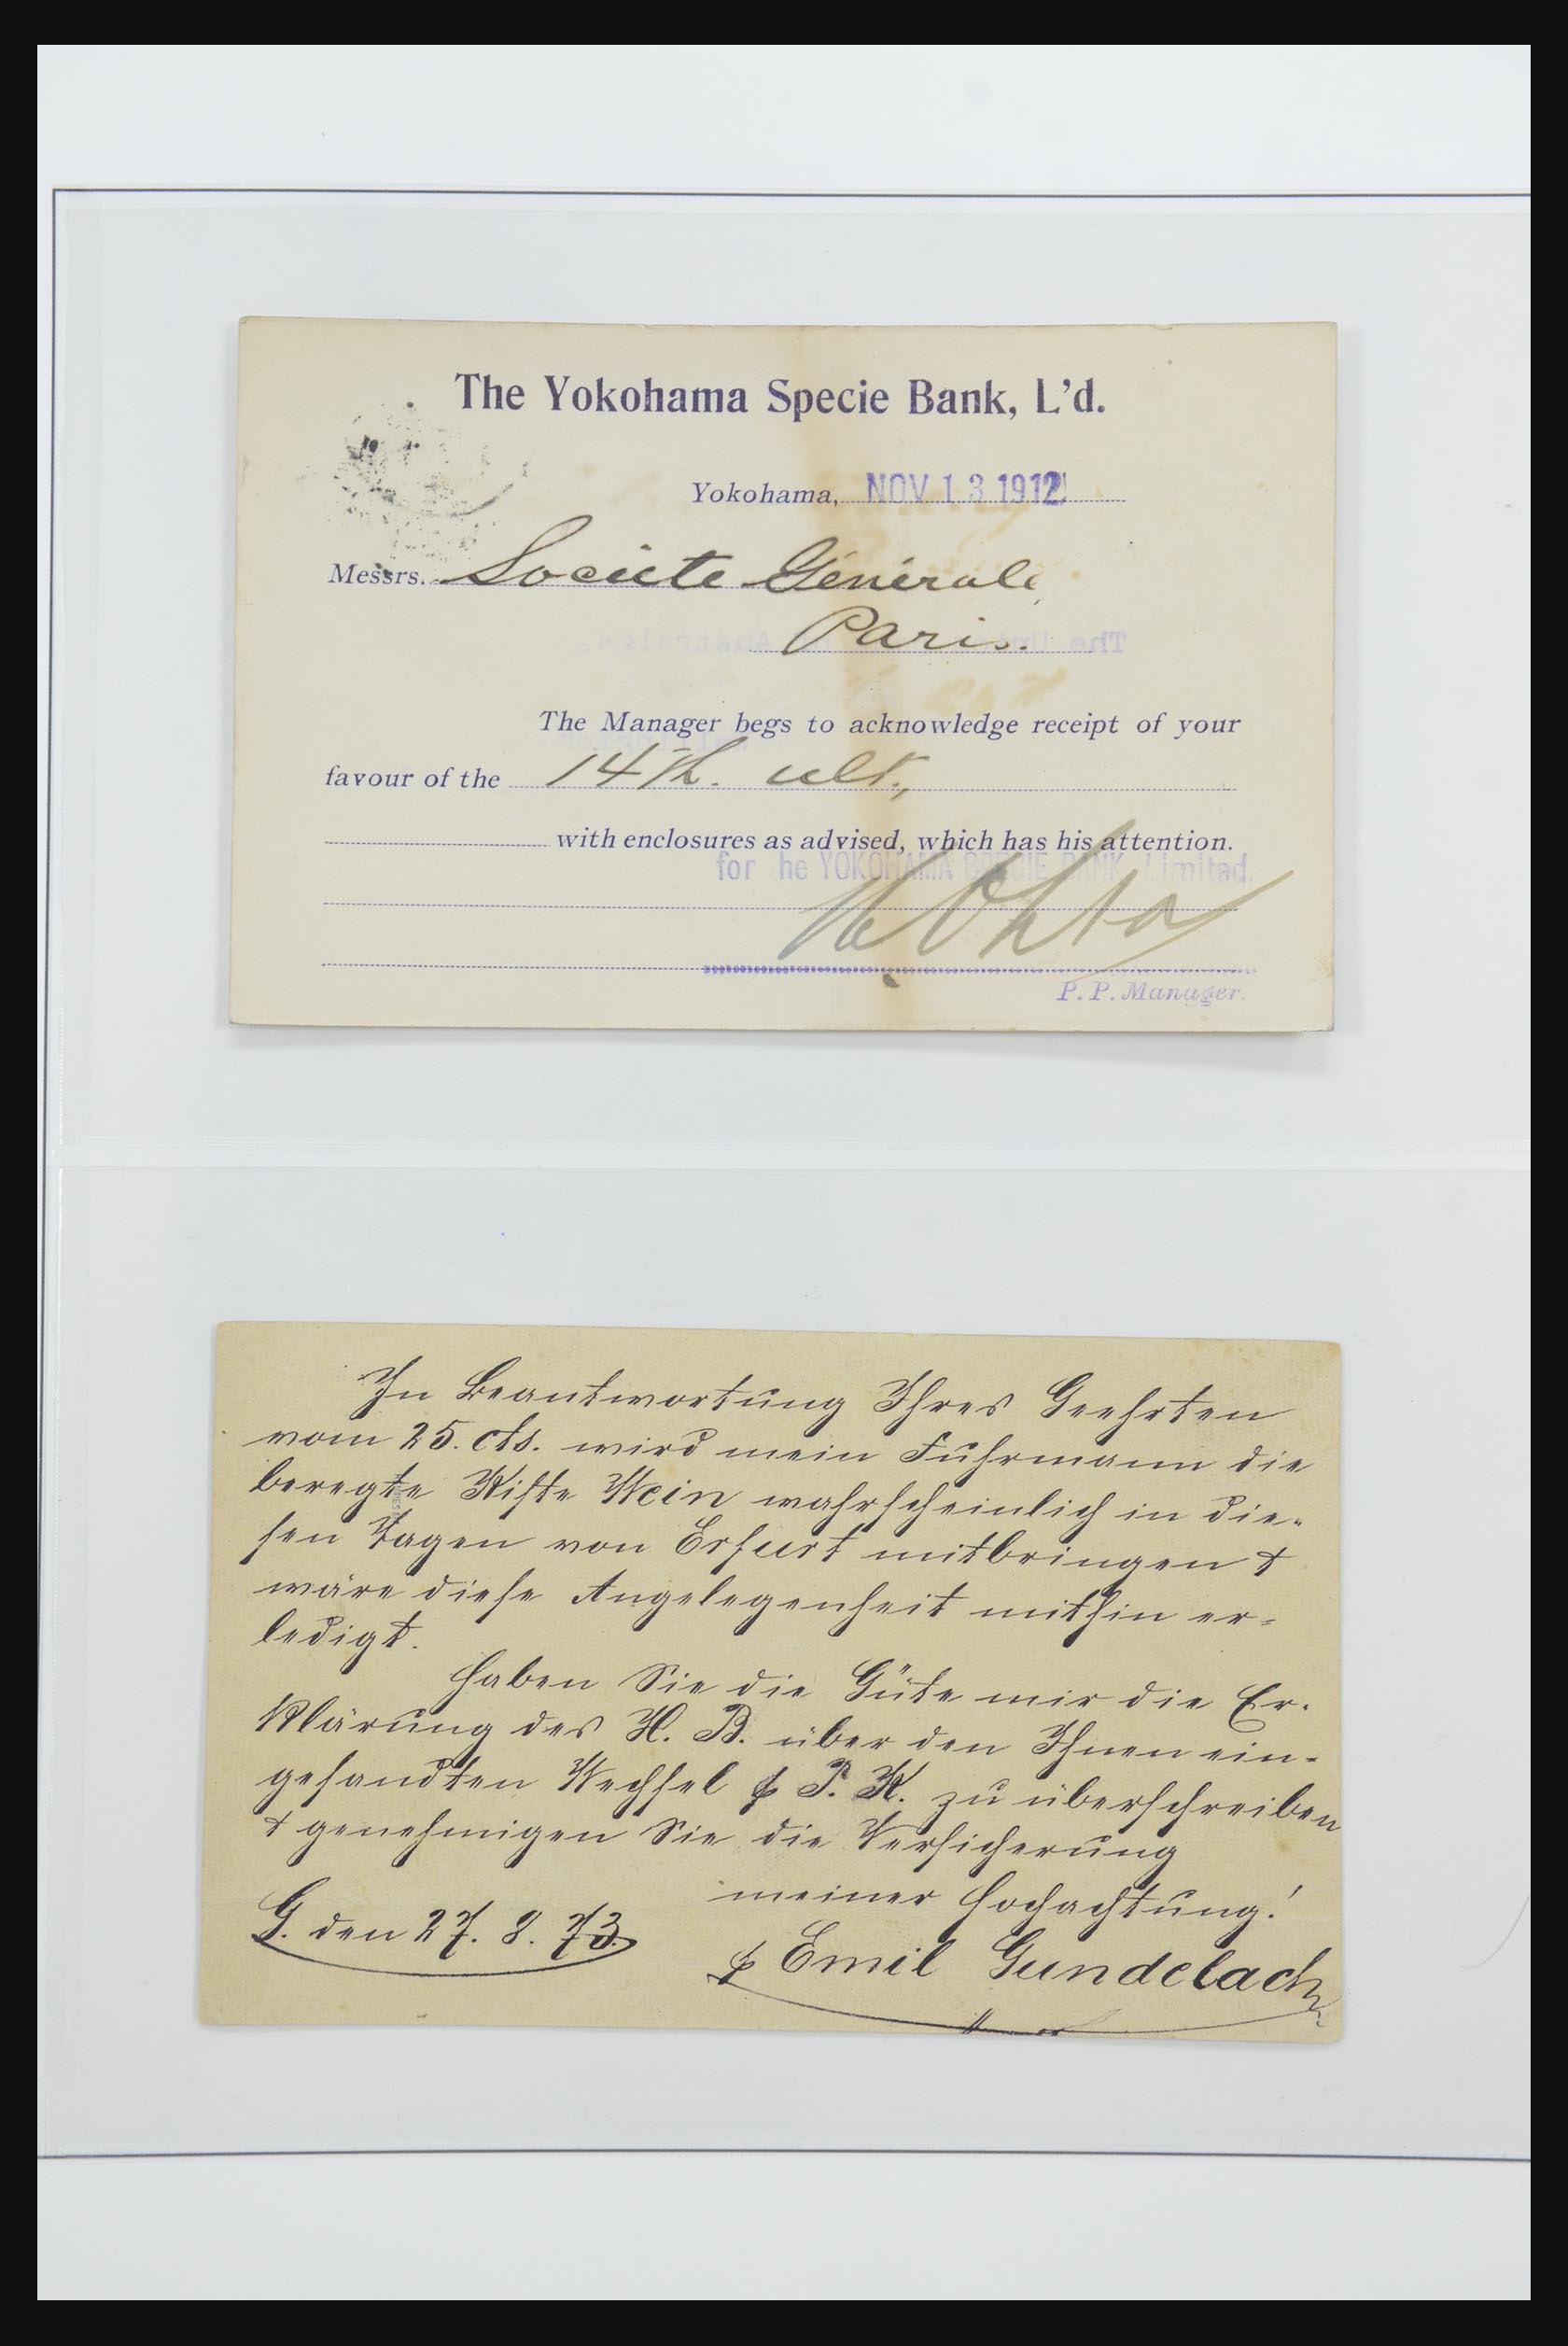 The Yokohama Specie Bank, L'd.
Yokohama, NOV 13 1912
Messrs. Societe Générale
Paris.
The Manager begs to acknowledge receipt of your
favour of the 14th. ult.,
with enclosures as advised, which has his attention.
for he YOKOHAMA SPECIE BANK Limited.
P. P. Manager.
In Beantwortung Ihres Geehrten
vom 25. cts. wird mein Fuhrmann die
beregte Kiste Wein wahrscheinlich in die-
sen Tagen von Erfurt mitbringen &
wäre diese Angelegenheit mithin er-
ledigt.
Haben Sie die Güte mir die Er-
klärung des H. B. über den Ihnen ein-
gesandten Wechsel p P. K. zu überschreiben
& genehmigen Sie die Versicherung
meiner Hochachtung!
G. den 27. 8. 73.
p Emil Gundelach